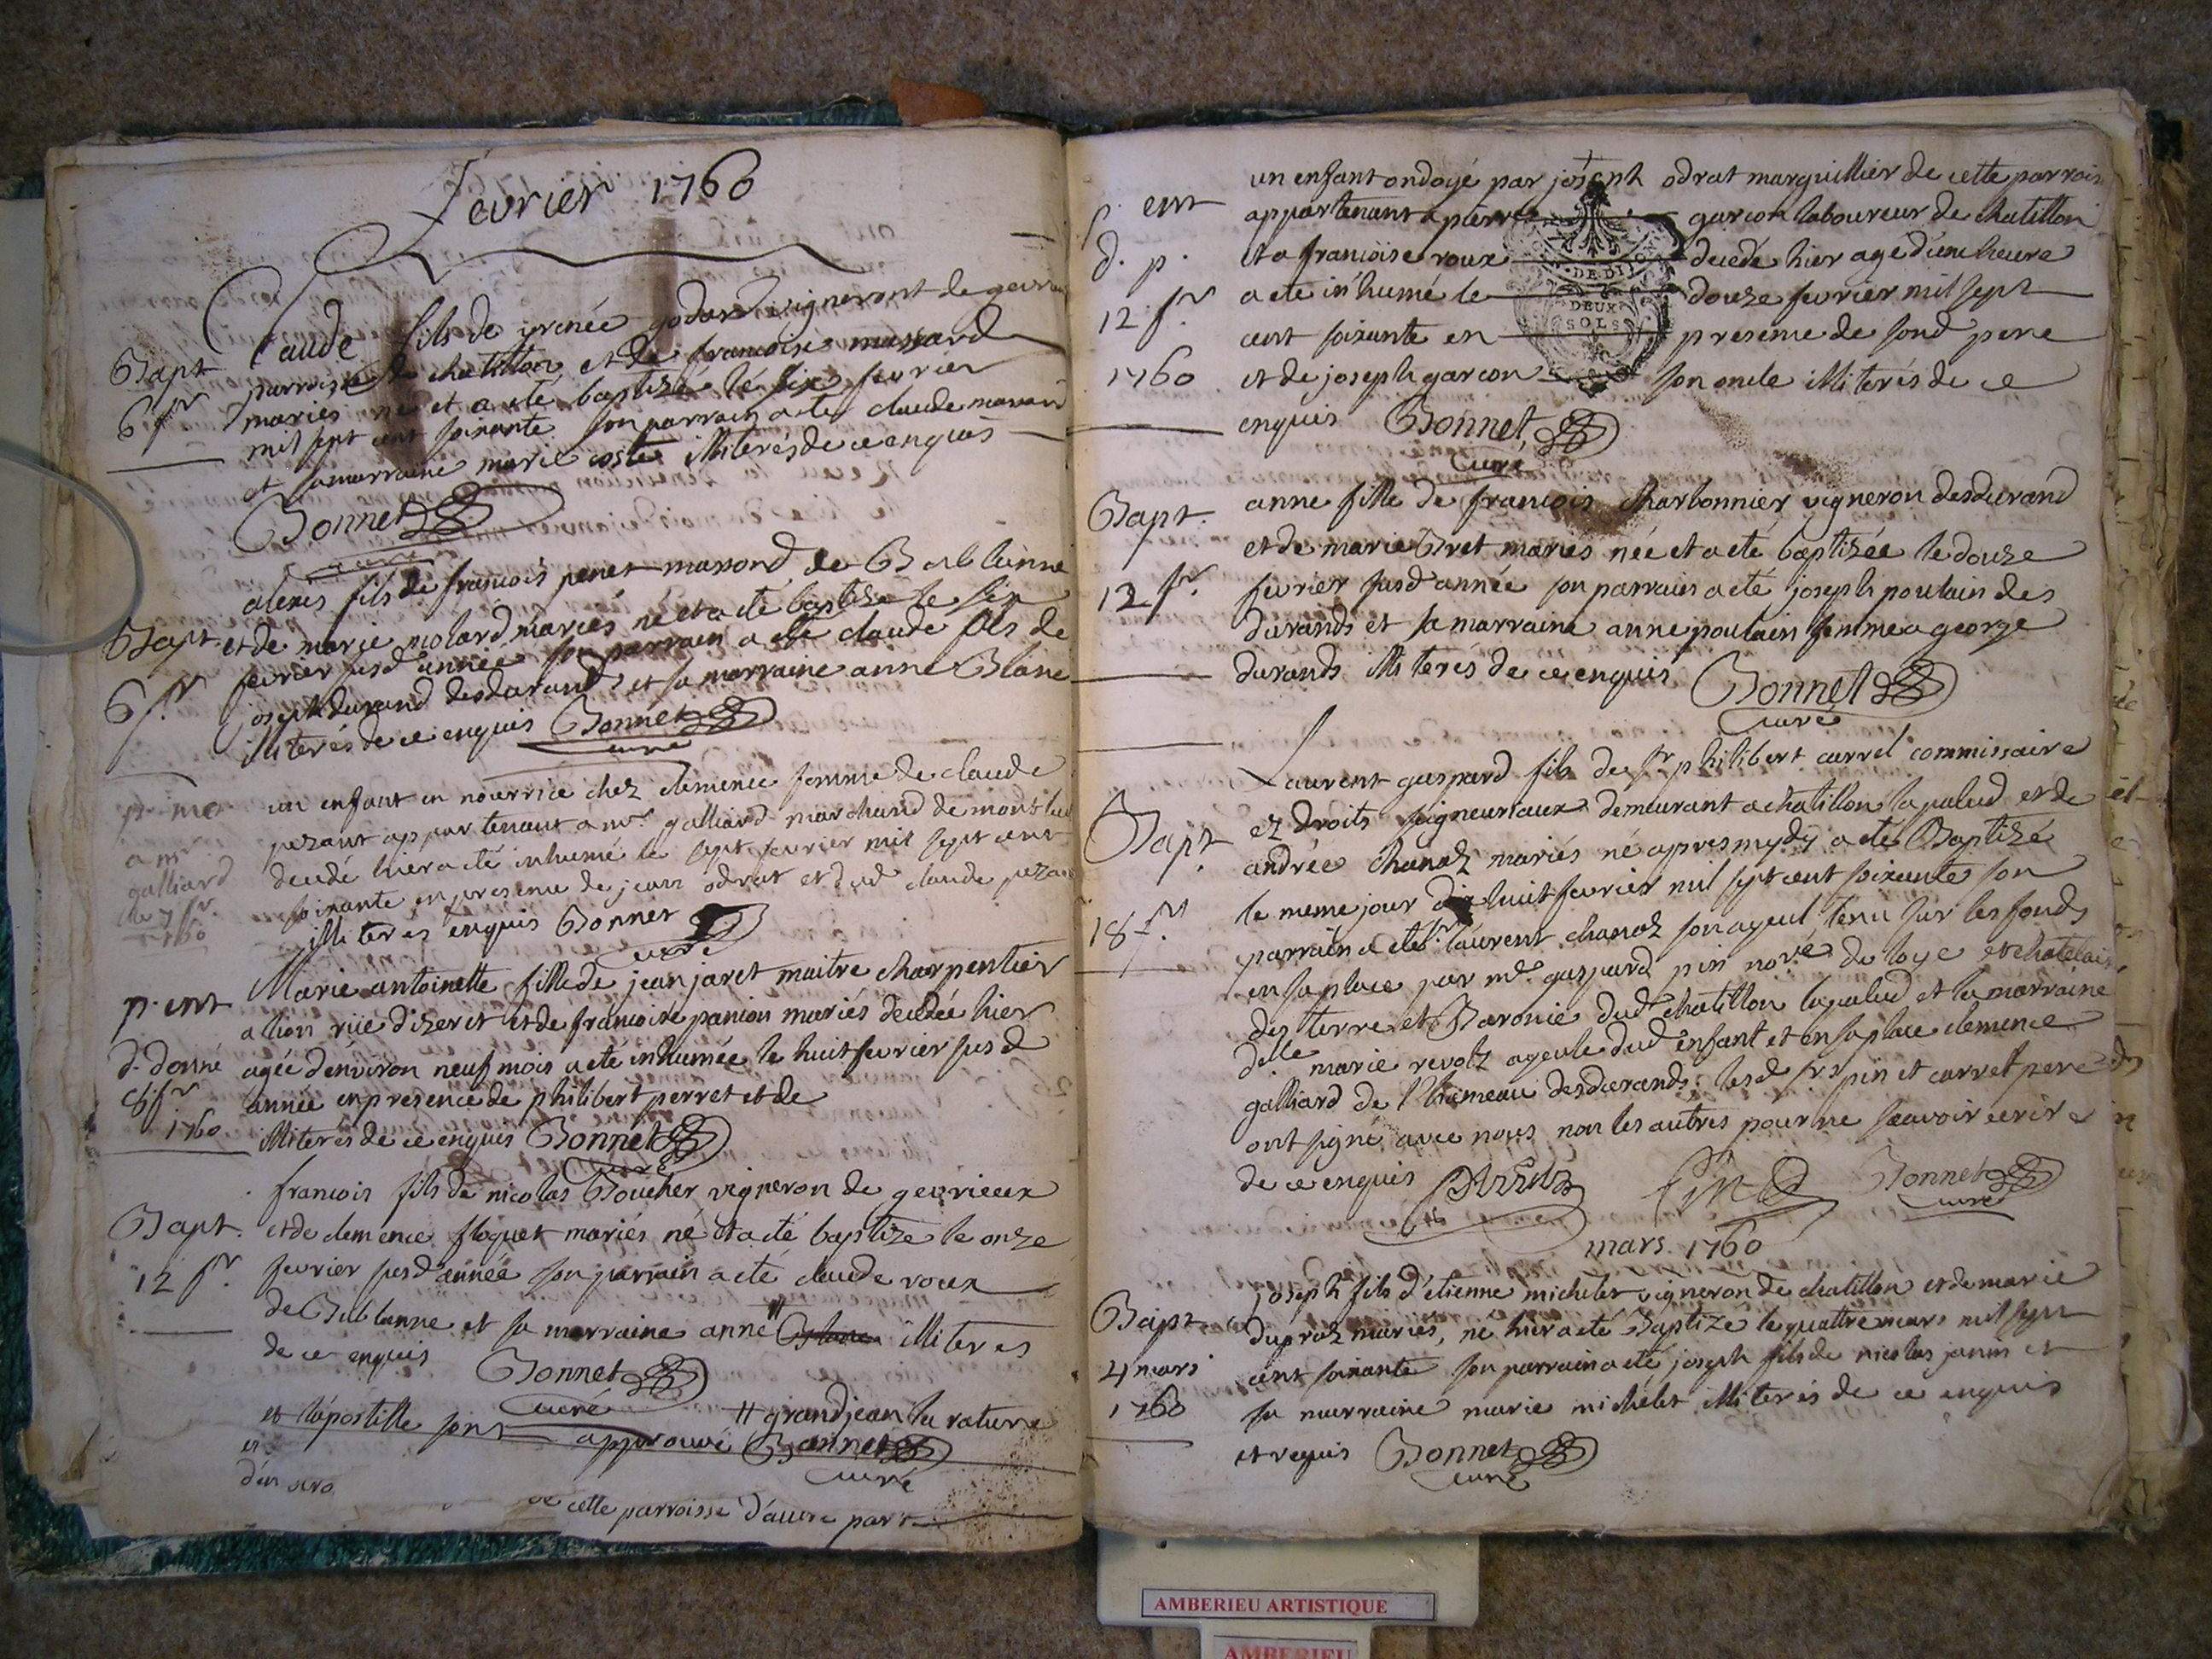 fevrier 1760
Bapt
6 fr
Claude fils de yrenée godard vigneront de
parroisse de chatillon et de francoise massard
mariés né et a eté baptisé le six fevrier
mil sept cent soixante son parrain a eté claude
et sa marraine marie coste illiterés de ce enquis
Bonnet
curé
Bapt
6 fr
alexis fils de francois penet massond de Bublanne
et de marie molard mariés né et a eté baptize le six
fevrier susd année son parrain a eté claude fils de
joseph durand desdurands et sa marraine anne Blanc
illiterés de ce enquis Bonnet
curé
a mr
galliard
le 7 fr.
1760
un enfant en nourrice chez clemence femme de claude
pezant appartenant a mr. galliard marchand de
decedé hier a eté inhumé le sept fevrier mil sept cent
soixante en presence de jean odrat et dud claude
illiteres enquis Bonnet
curé
p. ent
d. donné
fr
1760
Marie antoinette fille de jean jaret maitre charpentier
a lion rüe dizeret et de francoise panion mariés decedée hier
agée d'environ neuf mois a eté inhumée le huit fevrier susd
année en presence de philibert perret et de
illiterés de ce enquis Bonnet
curé
Bapt.
12 fr.
francois fils de nicolas Boucher vigneron de gevrieux
et de clemence floquet mariés né et a eté baptize le onze
fevrier susd année son parrain a eté claude roux
de Bublanne et sa marraine anne // Blanc illiteres
de ce enquis Bonnet
curé
// grandjean la rature
et l'apostille sont approuvé Bonnet
curé
de cette parroisse d'autre part
ent
d. p.
12 fr
1760
un enfant ondoyé par joseph odrat marguillier de cette
appartenant a pierre garcon laboureur de chatillon
et a francoise roux decedé hier agé d'une heure
a eté inhumé le douze fevrier mil sept
cent soixante en presence de sond pere
et de joseph garcon son oncle illiterés de ce
enquis Bonnet
curé
DE DIJON
DEUX
SOLS
Bapt.
12 fr.
anne fille de francois charbonnier vigneron desdurand
et de marie Bret mariés née et a eté baptizée le douze
fevrier susd année son parrain a eté joseph poulain des
durands et sa marraine anne poulain femme a george
durands illiteres de ce enquis Bonnet
curé
Bapt.
18 fr.
Laurent gaspard fils de sr philibert carrel commissaire
ez droits seigneuriaux demeurant a chatillon lapalud et de
andrée chanoz mariés né apres mydy a eté Baptizé
le meme jour dix huit fevrier mil sept cent soixante son
parrain a eté sr. laurent chanoz son ayeul tenu sur les fonds
en sa place par me. gaspard pin nore. de loye et chatelain
des terre et Baronie dud. chatillon lapalud et la marraine
delle marie revolz ayeule dud enfant et en sa place clemence
galliard de l'hameau desdurands; lesd. srs pin et carrel pere
ont signé avec nous non les autres pour ne scavoir ecrire
de ce enquis
Pin Bonnet
curé
mars 1760
Bapt
4 mars
1760
joseph fils d'etienne michelet vigneron de chatillon et de marie
dupraz mariés, né hier a eté Baptizé le quattre mars mil sept
cent soixante son parrain a eté joseph fils de nicolas janin et
sa marraine marie michelet illiterés de ce enquis
et requis Bonnet
curé
AMBERIEU ARTISTIQUE
AMBERIEU